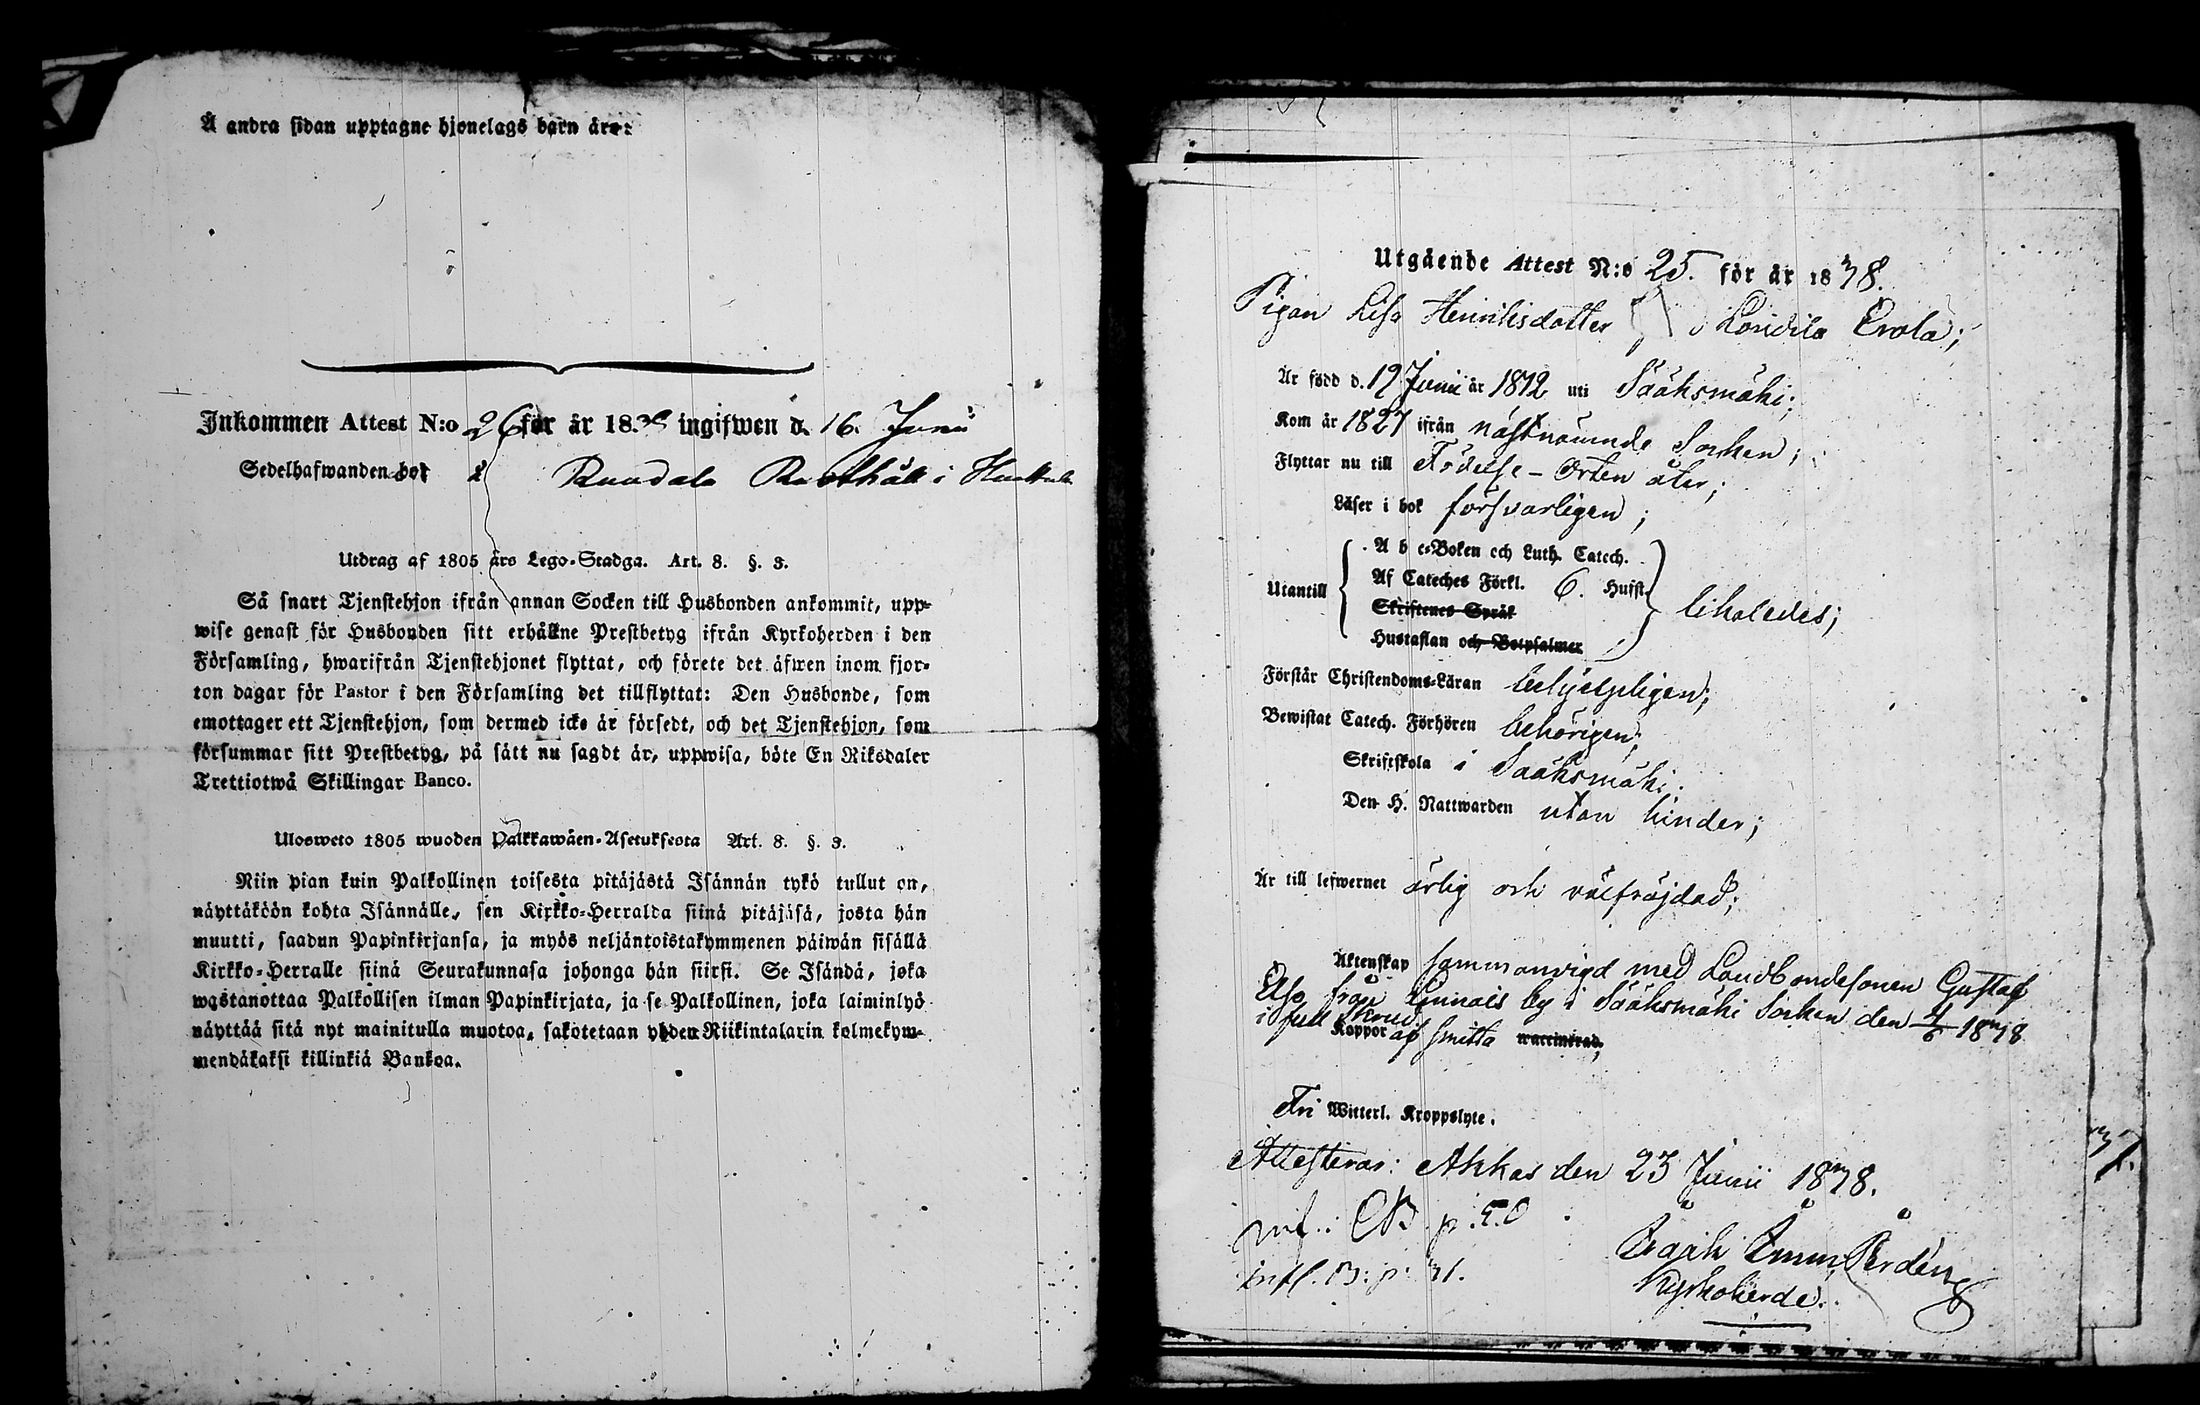 Å andra sidan upptagne hjonelags barn äro:
Inkommen Attest N:o 26 för år 1838 ingifwen d. 16. Junii
Sedelhafwanden bor å Ruadala Rusthåll i
Utdrag af 1805 års Lego-Stadga. Art. 8. §. 3.
Så snart Tjenstehjon ifrån annan Socken till Husbonden ankommit, upp-
wise genast för Husbonden sitt erhållne Prestbetyg ifrån Kyrkoherden i den
Församling, hwarifrån Tjenstehjonet flyttat, och förete det äfwen inom fjor-
ton dagar för Pastor i den Församling det tillflyttat: Den Husbonde, som
emottager ett Tjenstehjon, som dermed icke är försedt, och det Tjenstehjon, som
försummar sitt Prestbetyg, på sätt nu sagdt är, uppwisa, böte En Riksdaler
Trettiotwå Skillingar Banco.
Ulosweto 1805 wuoden Palkkawäen-Asetuksesta Art. 8. §. 3.
Niin pian kuin Palkollinen toisesta pitäjästä Isännän tykö tullut on,
näyttäköön kohta Isännälle, sen Kirkko-Herralda siinä pitäjäsä, josta hän
muutti, saadun Papinkirjansa, ja myös neljäntoistakymmenen päiwän sisällä
Kirkko-Herralle siinä Seurakunnasa johonga hän siirsi. Se Isändä, joka
wastanottaa Palkollisen ilman Papinkirjata, ja se Palkollinen, joka laiminlyö
näyttää sitä nyt mainitulla muotoa, sakotetaan yhden Riikintalarin kolmekym-
mendäkaksi killinkiä Bankoa.
Utgående Attest N:o 25. för år 1838.
Pigan Lisa Henriksdotter Erola;
Är född d. 19 Junii år 1812 uti Sääksmäki;
Kom år 1827 ifrån nästnämnde Socken;
Flyttar nu till Födelse-Orten åter;
Läser i bok försvarligen;
A b c-Boken och Luth. Catech.
Utantill Af Cateches Förkl. 6. Hufst.
Skriftenes Språk
Hustaflan och Botpsalmer
Förstår Christendoms-Läran behjelpligen;
Bewistat Catech. Förhören behörigen;
Skriftskola i Sääksmäki.
Den H. Nattwarden utan hinder;
Är till lefwernet ärlig och välfräjdad;
Äktenskap sammanvigd med Landbondesonen Gustaf
från by i Sääksmäki Socken den 4/6 1838
i full skrud
Koppor af smitta waccinerad,
Fri Witterl. Kroppslyte.
Attesteras: Akkas den 23 Junii 1838.
37.
Kyrkoherde.